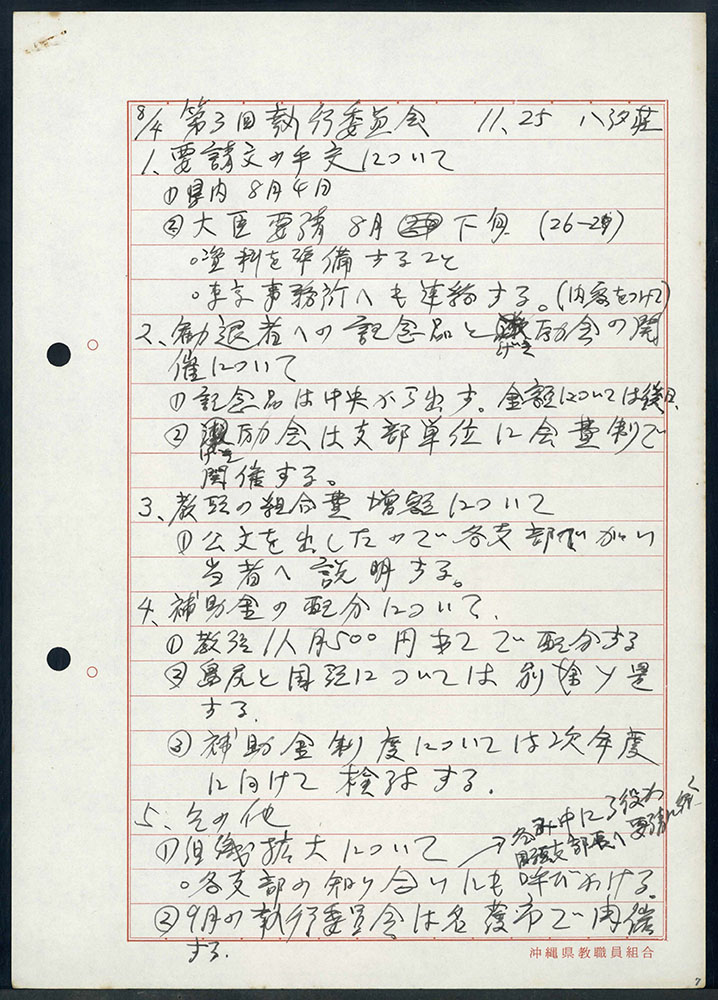 8/4 第3回執行委員会 11.25 八汐荘
1、要請文の手交について
① 県内 8月4日
② 大臣要請 8月 下旬 (26-29)
○資料を準備すること
○東京事務所へも連絡する。(内容をつけて)
2、勧退者への記念品と げき励会の開
催について
① 記念品は中央から出す。金額については後日
② げき励会は支部単位に会費制で
開催する。
3、教頭の組合費増額について
① 公文を出したので各支部でがい
当者へ説明する。
4、補助金の配分について、
① 教頭1人月500円あてで配分する
② 島尻と国頭については別途
する。
③ 補助金制度については次年度
に向けて検討する。
5、その他
① 組織拡大について
→ 名 中に 役
国頭支部長へ要請に
○各支部の知り合いにも呼びかける。
② 9月の執行委員会は名護市で開催
する。
沖縄県教職員組合
7